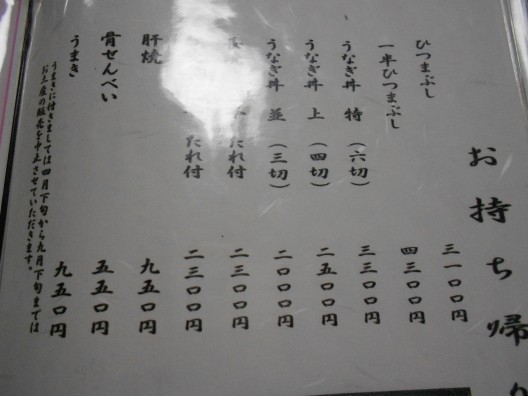 お持ち帰り
ひつまぶし 三一〇〇円
一半ひつまぶし 四三〇〇円
うなぎ丼 特 (六切) 三三〇〇円
うなぎ丼 上 (四切) 二五〇〇円
うなぎ丼 並 (三切) 二〇〇〇円
たれ付 二三〇〇円
たれ付 二三〇〇円
肝焼 九五〇円
骨せんべい 五五〇円
うまき 九五〇円
うまきに付きましては四月下旬から九月下旬までは
お土産の販売を中止させていただきます。